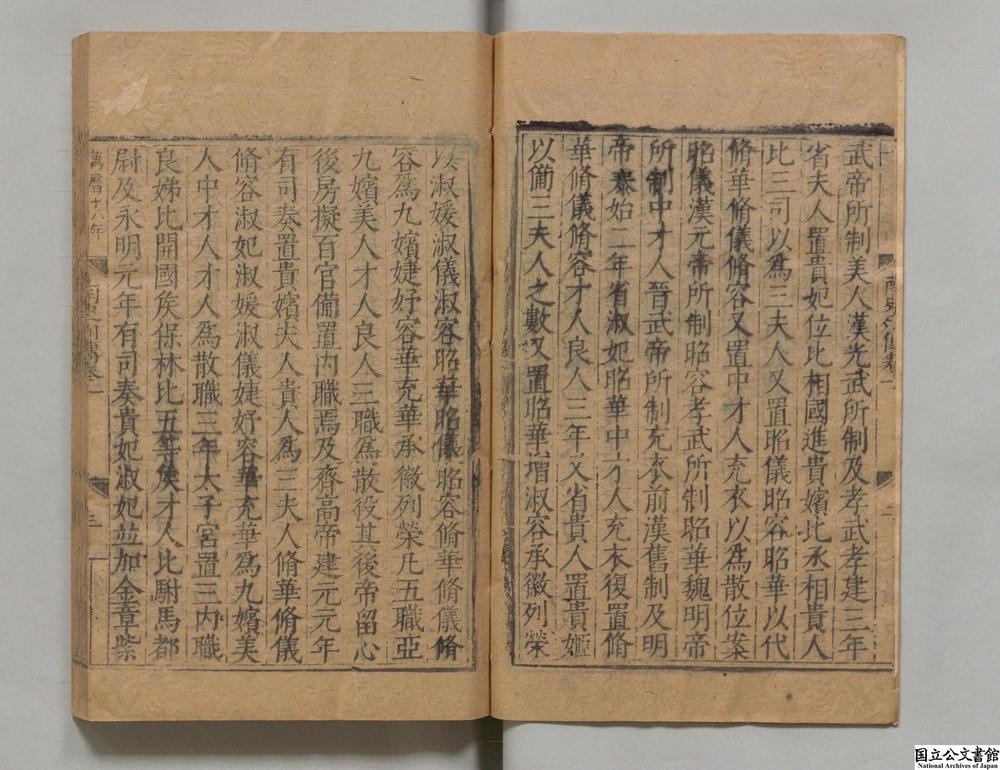 武帝所制美人漢光武所制及孝武孝建三年
省夫人置貴妃位比相國進貴嬪比丞相貴人
比三司以爲三夫人又置昭儀昭容昭華以代
脩華脩儀脩容又置中才人充衣以爲散位案
昭儀漢元帝所制昭容孝武所制昭華魏明帝
所制中才人晉武帝所制充衣前漢舊制及明
帝泰始二年省淑妃昭華中才人充衣復置脩
華脩儀脩容才人良人三年又省貴人置貴姬
以備三夫人之數又置昭華增淑容承徽列榮
以淑媛淑儀淑容昭華昭儀昭容脩華脩儀脩
容爲九嬪婕妤容華充華承徽列榮凡五職亞
九嬪美人才人良人三職爲散役其後帝留心
後房擬百官備置內職焉及齊高帝建元元年
有司奏置貴嬪夫人貴人爲三夫人脩華脩儀
脩容淑妃淑媛淑儀婕妤容華充華爲九嬪美
人中才人才人爲散職三年太子宮置三內職
良娣比開國侯保林比五等侯才人比駙馬都
尉及永明元年有司奏貴妃淑妃並加金章紫
萬曆十八年
南史列傳卷一
三
国立公文書館
National Archives of Japan